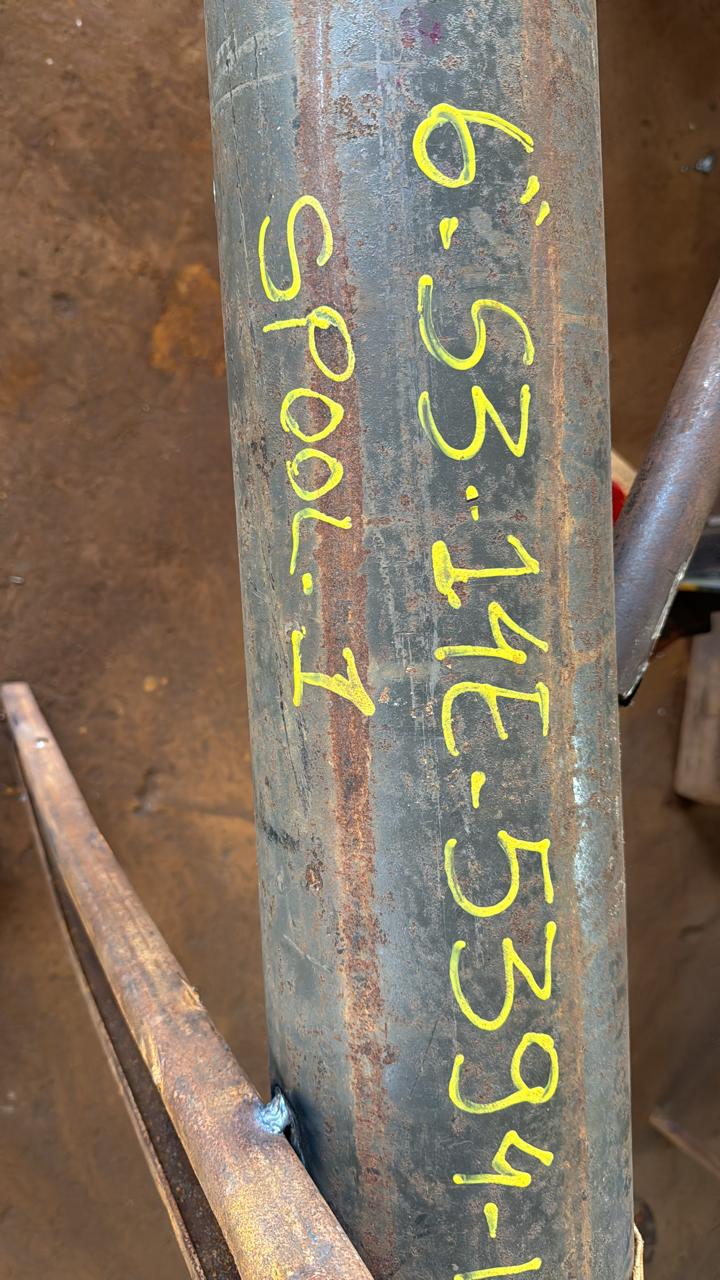 6". S3.-14E-5394-1
SPOOL.1